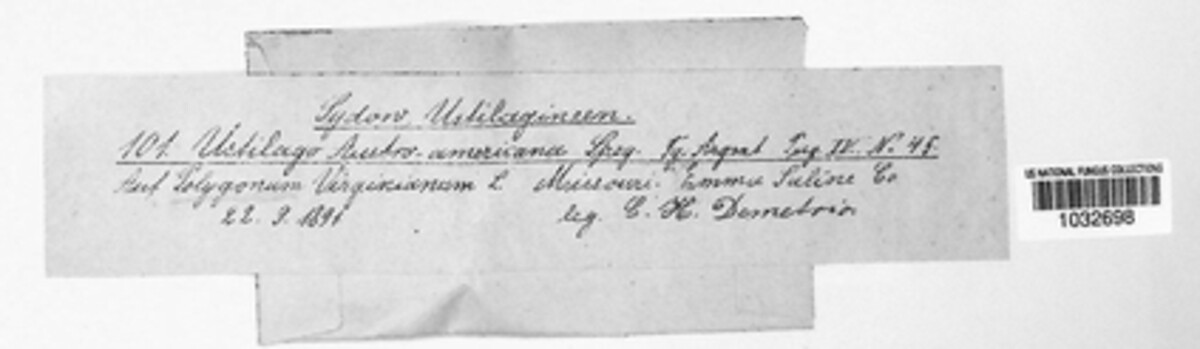 Sydow Ustilagineen.
101. Ustilago Austro-americana Speg. Fg. Argent Pug. IV. No 45
Auf Polygonum Virginianum L Missouri. Emma Saline Co
22. 9. 1891
leg. C. H. Demetrio.
US NATIONAL FUNGUS COLLECTIONS
1032698